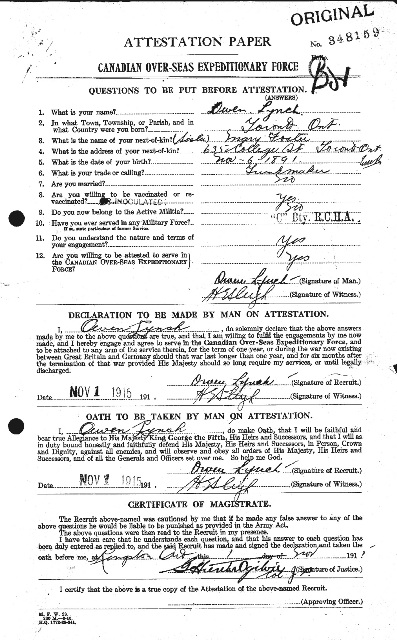 ORIGINAL
ATTESTATION PAPER
No. 348159
CANADIAN OVER-SEAS EXPEDITIONARY FORCE
QUESTIONS TO BE PUT BEFORE ATTESTATION.
(ANSWERS)
1. What is your name? Owen Lynch
2. In what Town, Township, or Parish, and in
what Country were you born? Toronto Ont.
3. What is the name of your next-of-kin? (Sister) Mary Foster
4. What is the address of your next-of-kin? 635 College St. Toronto Ont.
5. What is the date of your birth? Nov - 6, 1891
6. What is your trade or calling? Trunkmaker
7. Are you married? No
8. Are you willing to be vaccinated or re-
vaccinated? INOCULATED Yes
9. Do you now belong to the Active Militia? No
10. Have you ever served in any Military Force? "C" Bty. R.C.H.A.
If so, state particulars of former Service.
11. Do you understand the nature and terms of
your engagement? Yes
12. Are you willing to be attested to serve in the
CANADIAN OVER-SEAS EXPEDITIONARY
FORCE? Yes
Owen Lynch (Signature of Man).
(Signature of Witness).
DECLARATION TO BE MADE BY MAN ON ATTESTATION.
I, Owen Lynch, do solemnly declare that the above answers
made by me to the above questions are true, and that I am willing to fulfil the engagements by me now
made, and I hereby engage and agree to serve in the Canadian Over-Seas Expeditionary Force, and
to be attached to any arm of the service therein, for the term of one year, or during the war now existing
between Great Britain and Germany should that war last longer than one year, and for six months after
the termination of that war provided His Majesty should so long require my services, or until legally
discharged.
Owen Lynch (Signature of Recruit).
Date NOV 1 1915 191 . (Signature of Witness).
OATH TO BE TAKEN BY MAN ON ATTESTATION.
I, Owen Lynch, do make Oath, that I will be faithful and
bear true Allegiance to His Majesty King George the Fifth, His Heirs and Successors, and that I will as
in duty bound honestly and faithfully defend His Majesty, His Heirs and Successors, in Person, Crown
and Dignity, against all enemies, and will observe and obey all orders of His Majesty, His Heirs and
Successors, and of all the Generals and Officers set over me. So help me God.
Owen Lynch (Signature of Recruit).
Date NOV 1 1915 191 . (Signature of Witness).
CERTIFICATE OF MAGISTRATE.
The Recruit above-named was cautioned by me that if he made any false answer to any of the
above questions he would be liable to be punished as provided in the Army Act.
The above questions were then read to the Recruit in my presence.
I have taken care that he understands each question, and that his answer to each question has
been duly entered as replied to, and the said Recruit has made and signed the declaration and taken the
oath before me, at Kingston Ont this 1 day of Nov 191
(Signature of Justice).
I certify that the above is a true copy of the Attestation of the above-named Recruit.
(Approving Officer.)
M. F. W. 23.